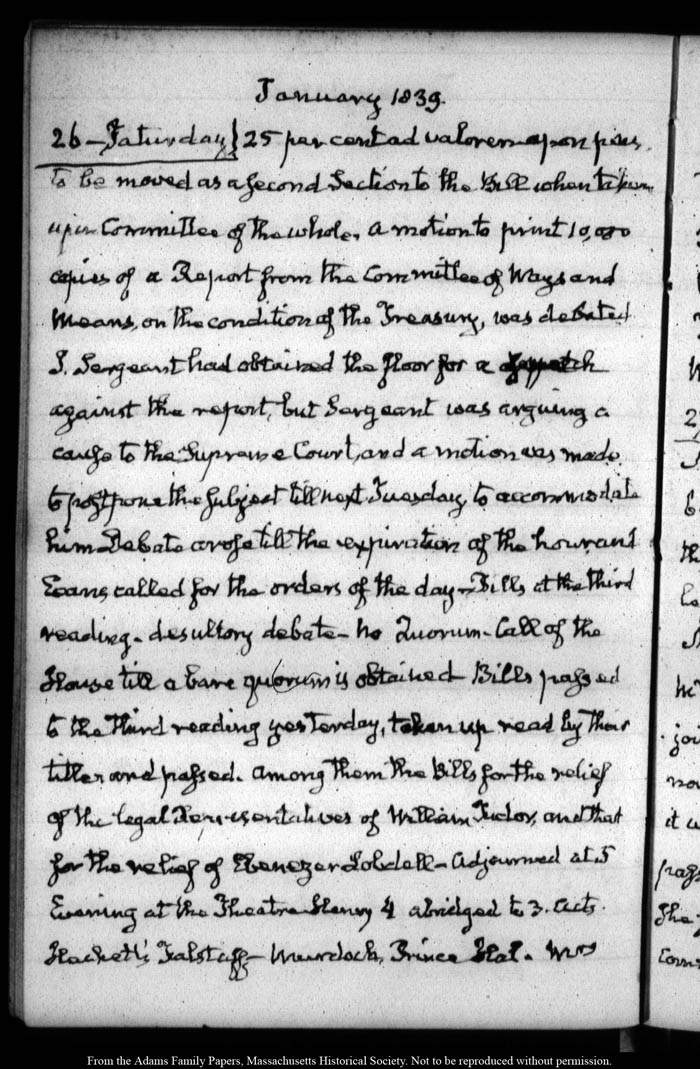 January 1839.
26 - Saturday} 25 per cent ad valorem upon pins,
to be moved as a second Section to the Bill when taken
up in Committee of the whole. A motion to print 10,000
copies of a Report from the Committee of Ways and
Means, on the condition of the Treasury, was debated
J. Sergeant had obtained the floor for a
against the report, but Sergeant was arguing a
cause to the Supreme Court, and a motion was made
to postpone the subject till next Tuesday, to accommodate
him Debate arose till the expiration of the hour and
Evans called for the orders of the day - Bills at the third
reading - desultory debate - no Quorum - Call of the
House till a bare quorum is obtained - Bills passed
to the third reading yesterday, taken up read by their
titles and passed. Among them the Bills for the relief
of the legal Representatives of William Tudor, and that
for the relief of Ebenezer Lobdell - Adjourned at 5
Evening at the Theatre Henry 4 abridged to 3. Acts.
Hackett's Falstaff - Murdock, Prince Hal. Mrs
From the Adams Family Papers, Massachusetts Historical Society. Not to be reproduced without permission.